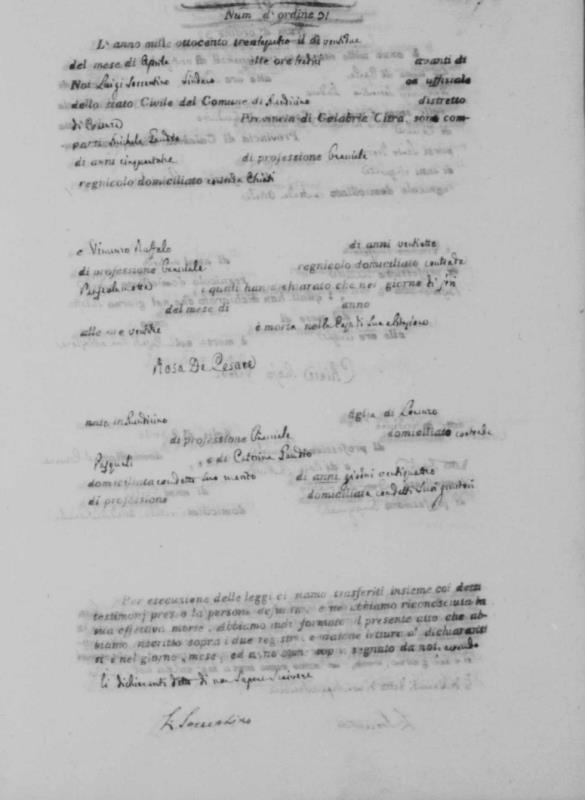 Num d'ordine 31
L'anno mille ottocento trentaquattro il dì ventidue
del mese di Aprile alle ore tredici avanti di
Noi Luigi Sorrentino Sindaco ed uffiziale
dello stato Civile del Comune di distretto
di Provincia di Calabria Citra, sono com-
parsi Michele
di anni cinquantatre di professione Bracciale
regnicolo domiciliato contrada
e Vincenzo di anni ventiotto
di professione Bracciale regnicolo domiciliato contrada
i quali han dichiarato che nel giorno di
del mese di anno
alle ore ventidue è morta nella Casa di sua abitazione
Rosa De Cesare
nata in figlia di Lorenzo
di professione Bracciale domiciliato contrada
e di Catarina
domiciliata con detto suo marito di anni giorni ventiquattro
di professione domiciliata con detti suoi genitori
Per esecuzione delle leggi ci siamo trasferiti insieme coi detti
testimonj presso la persona defunta, e ne abbiamo riconosciuta la
sua effettiva morte, abbiamo indi formato il presente atto che ab-
biamo inscritto sopra i due registri, e datone lettura a' dichiaranti
si è nel giorno, mese, ed anno come sopra segnato da noi, avendo
li dichiaranti detto di non sapere scrivere
L. Sorrentino